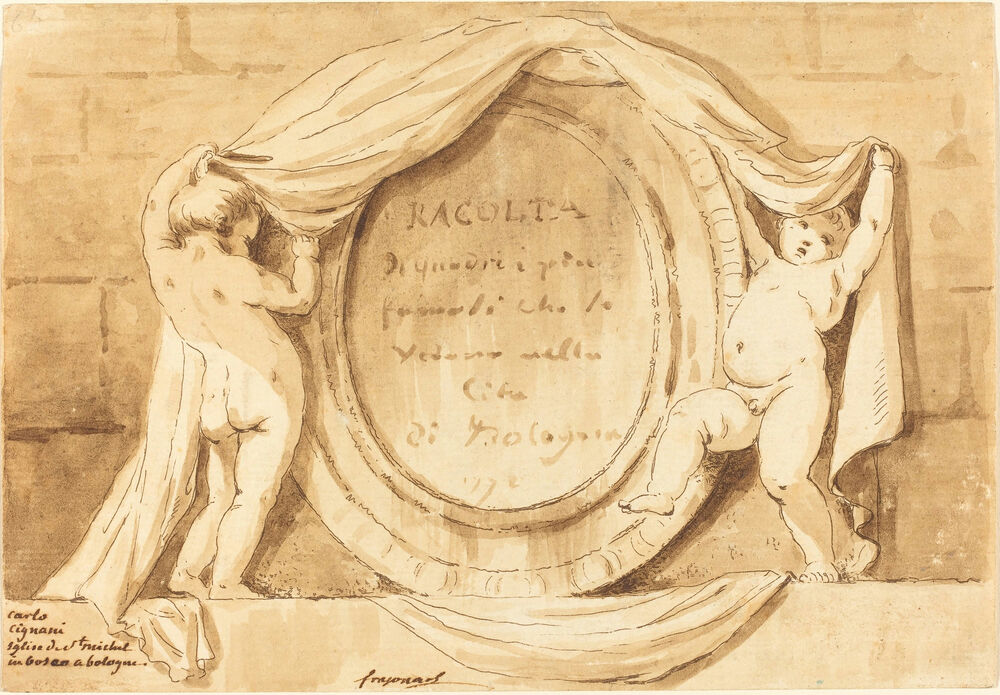 RACOLTA
di quadri i piu
famosi che si
vedano nella
Cita
di Bologna
carlo
cignani
eglise de St michel
in bosco a bologne.
fragonard